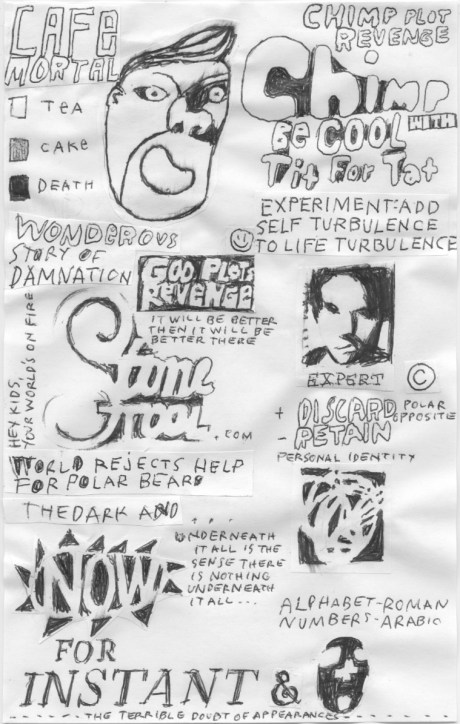 CAFE
MORTAL
TEA
CAKE
DEATH
CHIMP PLOT
REVENGE
Chimp
Be COOL WITH
Tit For Tat
EXPERIMENT: ADD
SELF TURBULENCE
TO LIFE TURBULENCE
WONDEROUS
STORY OF
DAMNATION
GOD PLOTS
REVENGE
IT WILL BE BETTER
THEN IT WILL BE
BETTER THERE
HEY KIDS,
YOUR WORLD'S ON FIRE
Stone
Stool
.COM
EXPERT
©
+ DISCARD POLAR
OPPOSITE
- RETAIN
PERSONAL IDENTITY
WORLD REJECTS HELP
FOR POLAR BEARS
THE DARK AND
...
UNDERNEATH
IT ALL IS THE
SENSE THERE
IS NOTHING
UNDERNEATH
IT ALL...
NOW
ALPHABET-ROMAN
NUMBERS-ARABIC
FOR
INSTANT &
THE TERRIBLE DOUBT OF APPEARANCES